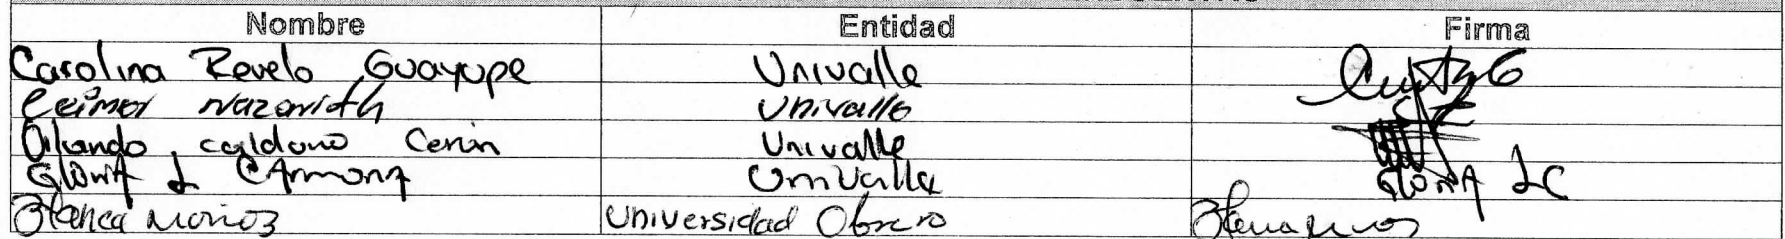 Nombre Entidad Firma
Carolina Revelo Guayupe Univalle
Leimer Nazarith Univalle
Orlando caldono Cerón Univalle
GLORIA L CARMONA Univalle GLORIA LC
Blanca Muñoz Universidad Obrero